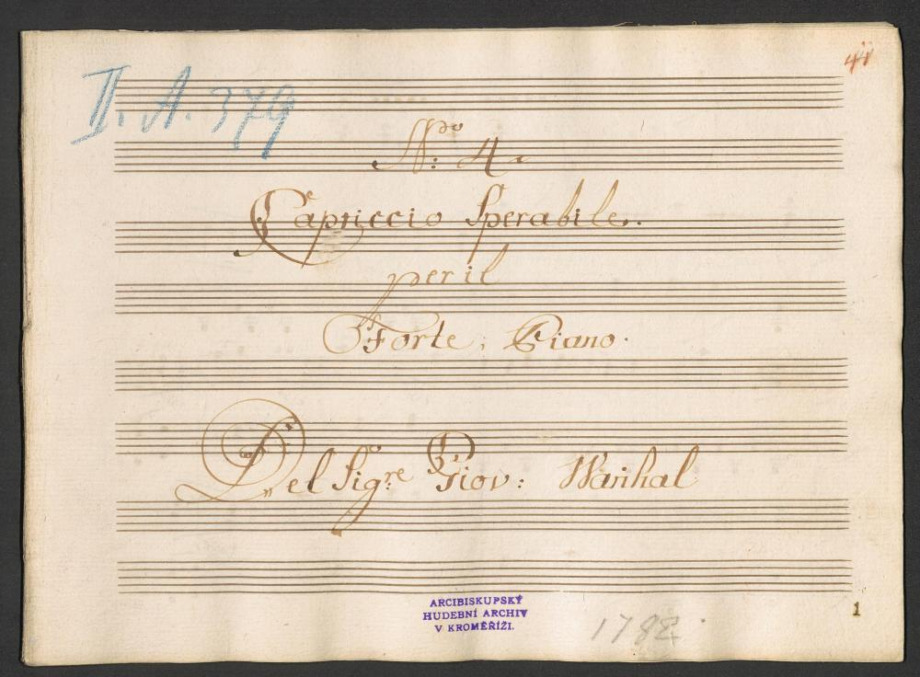 44
II. A. 379
No: 4.
Capriccio Sperabile.
per il
Forte, Piano.
Del Sigre: Giov: Wanhal
ARCIBISKUPSKÝ
HUDEBNÍ ARCHIV
V KROMĚŘÍŽI.
1782.
1